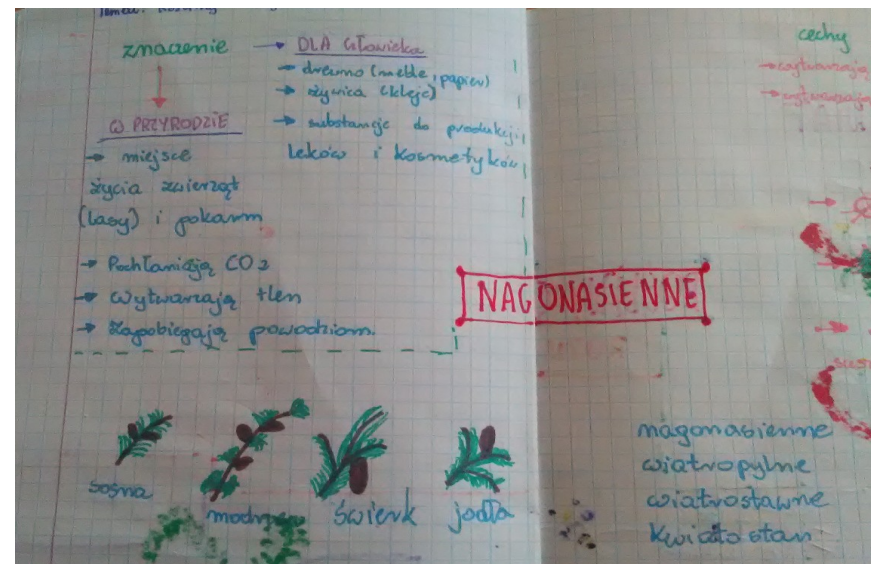 znaczenie → DLA człowieka
→ drewno (meble, papier)
→ żywica (kleje)
→ substancje do produkcji
leków i kosmetyków
W PRZYRODZIE
→ miejsce
życia zwierząt
(lasy) i pokarm
→ Pochłaniają CO2
→ wytwarzają tlen
→ Zapobiegają powodziom.
NAGONASIENNE
sosna
modrzew
świerk
jodła
cechy
→ wytwarzają
→ wytwarzają
nagonasienne
wiatropylne
wiatrosiewne
kwiatostan